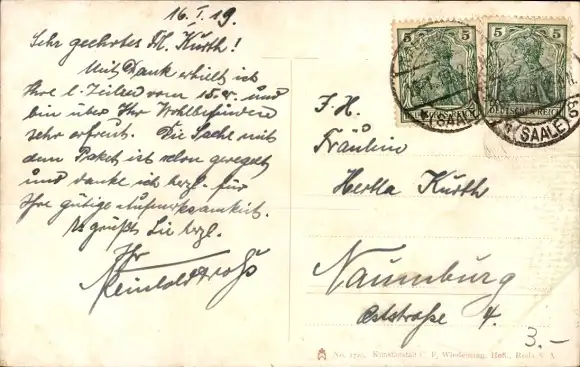 16. I. 19.
Sehr geehrtes Frl. Kurth!
Mit Dank erhielt ich
Ihre l. Zeilen vom 15. und
bin über Ihr Wohlbefinden
sehr erfreut. Die Sache mit
dem Paket ist schon geregelt
und danke ich herzl. für
Ihre gütige Aufmerksamkeit.
Es grüßt Sie herzl.
Ihr
Reinhold
5 5
5 5
DEUTSCHES REICH
(SAALE)
(SAALE)
F. H.
Fräulein
Hertha Kurth
Naumburg
Oststraße 4.
3.-
No. Kunstanstalt C. F. Wiedemann, Hofl., Roda S. A.